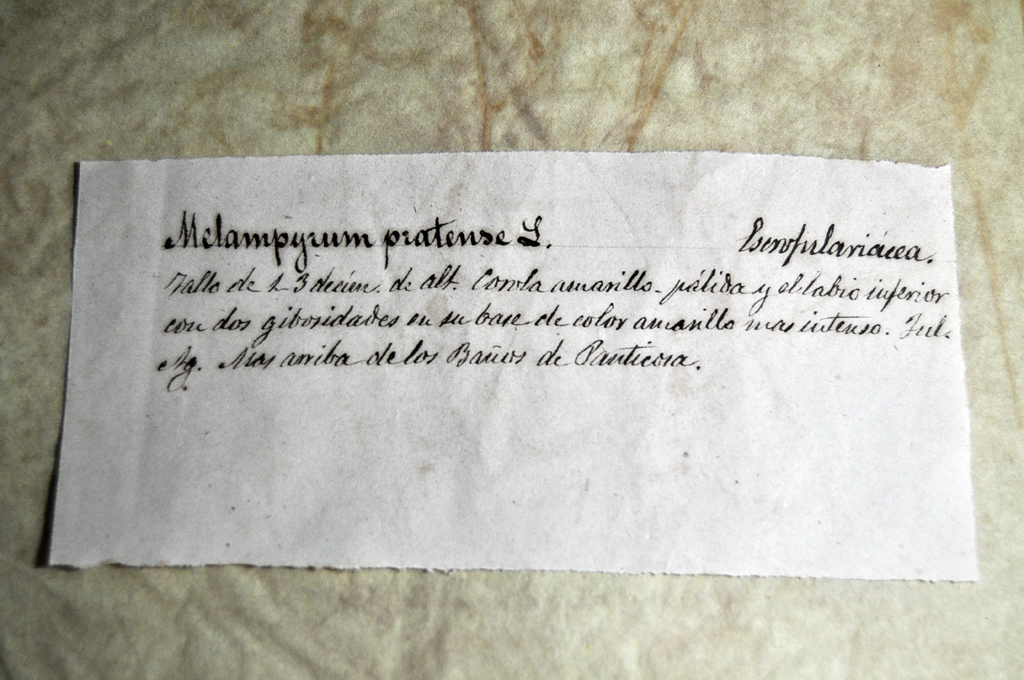 Melampyrum pratense L. Escrofulariácea.
Tallo de 1-3 decím. de alt. Corola amarillo-pálida y el labio inferior
con dos gibosidades en su base de color amarillo mas intenso. Jul.
Ag. Mas arriba de los Baños de Panticosa.